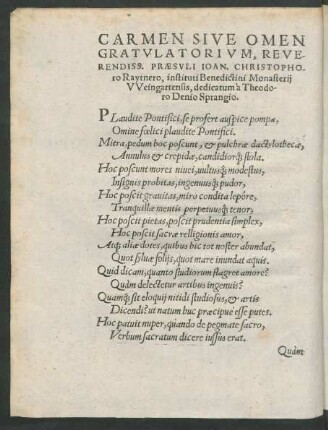 CARMEN SIVE OMEN
GRATVLATORIVM, REVE-
RENDISS. PRÆSVLI IOAN. CHRISTOPHO-
ro Raytnero, instituti Benedictini Monasterij
VVeingartensis, dedicatum à Theodo-
ro Denio Sprangio.
PLaudite Pontifici, se profert auspice pompa,
Omine fœlici plaudite Pontifici.
Mitra, pedum hoc poscunt, & pulchræ dactylothecæ,
Annulus & crepidæ, candidiorq́; stola.
Hoc poscunt mores niuei, uultusq́; modestus,
Insignis probitas, ingenuusq́; pudor,
Hoc poscit grauitas, miro condita lepore,
Tranquillæ mentis perpetuusq́; tenor;
Hoc poscit pietas, poscit prudentia simplex,
Hoc poscit sacræ relligionis amor,
Atq́; aliæ dotes, quibus hic tot noster abundat,
Quot siluæ folijs, quot mare inundat aquis.
Quid dicam, quanto studiorum flagret amore?
Quàm delectetur artibus ingenuis?
Quamq́; sit eloquij nitidi studiosus, & artis
Dicendi? ut natum huc præcipuè esse putes.
Hoc patuit nuper, quando de pegmate sacro,
Verbum sacratum dicere iussus erat.
Quàm